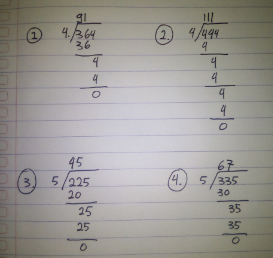 91
① 4. 364
36
4
4
0
111
② 4 444
4
4
4
4
4
0
45
③ 5 225
20
25
25
0
67
④ 5 335
30
35
35
0